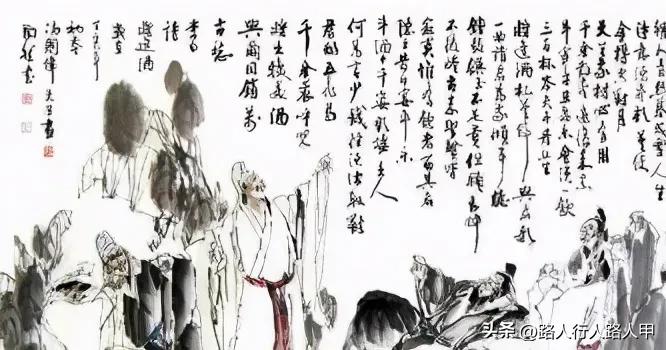 暮成雪人生
得意須盡歡莫使
金樽空對月
天生我材必有用
千金散盡還復來烹
羊宰牛且爲樂會須一飲
三百杯岑夫子丹丘生
將進酒杯莫停與君歌
一曲請君爲我傾耳聽
鐘鼓饌玉不足貴但願長醉
不復醒古來聖賢皆
寂寞惟有飲者留其名
陳王昔時宴平樂
斗酒十千恣歡謔主人
何爲言少錢徑須沽取對
君酌五花馬
千金裘呼兒
將出換美酒
與爾同銷萬
古愁
李白
詩
將進酒
歲在
丁亥年
初春
先生畫
書
头条 @路人行人路人甲